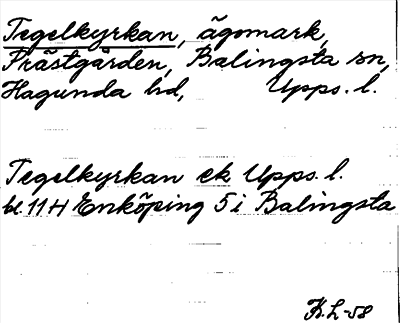 Tegelkyrkan, ägomark,
Prästgården, Balingsta sn,
Hagunda hd, Upps. l.
Tegelkyrkan ek Upps. l.
bl. 11H Enköping 5i Balingsta
K.L-58